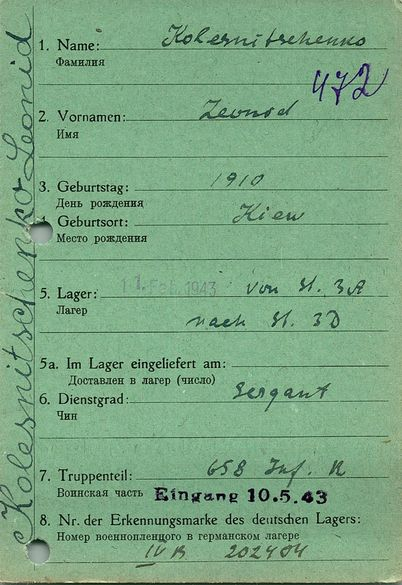 Kolesnitschenko Leonid
1. Name: Kolesnitschenko
Фамилия
472
2. Vornamen: Leonid
Имя
3. Geburtstag: 1910
День рождения
4. Geburtsort: Kiew
Место рождения
5. Lager: 11. Feb. 1943 von St. 3A
Лагер
nach St. 3D
5a. Im Lager eingeliefert am:
Доставлен в лагер (число)
6. Dienstgrad: Sergant
Чин
7. Truppenteil: 658 Inf. R
Воинская часть Eingang 10.5.43
8. Nr. der Erkennungsmarke des deutschen Lagers:
Номер военнопленого в германском лагере
IV B 202404